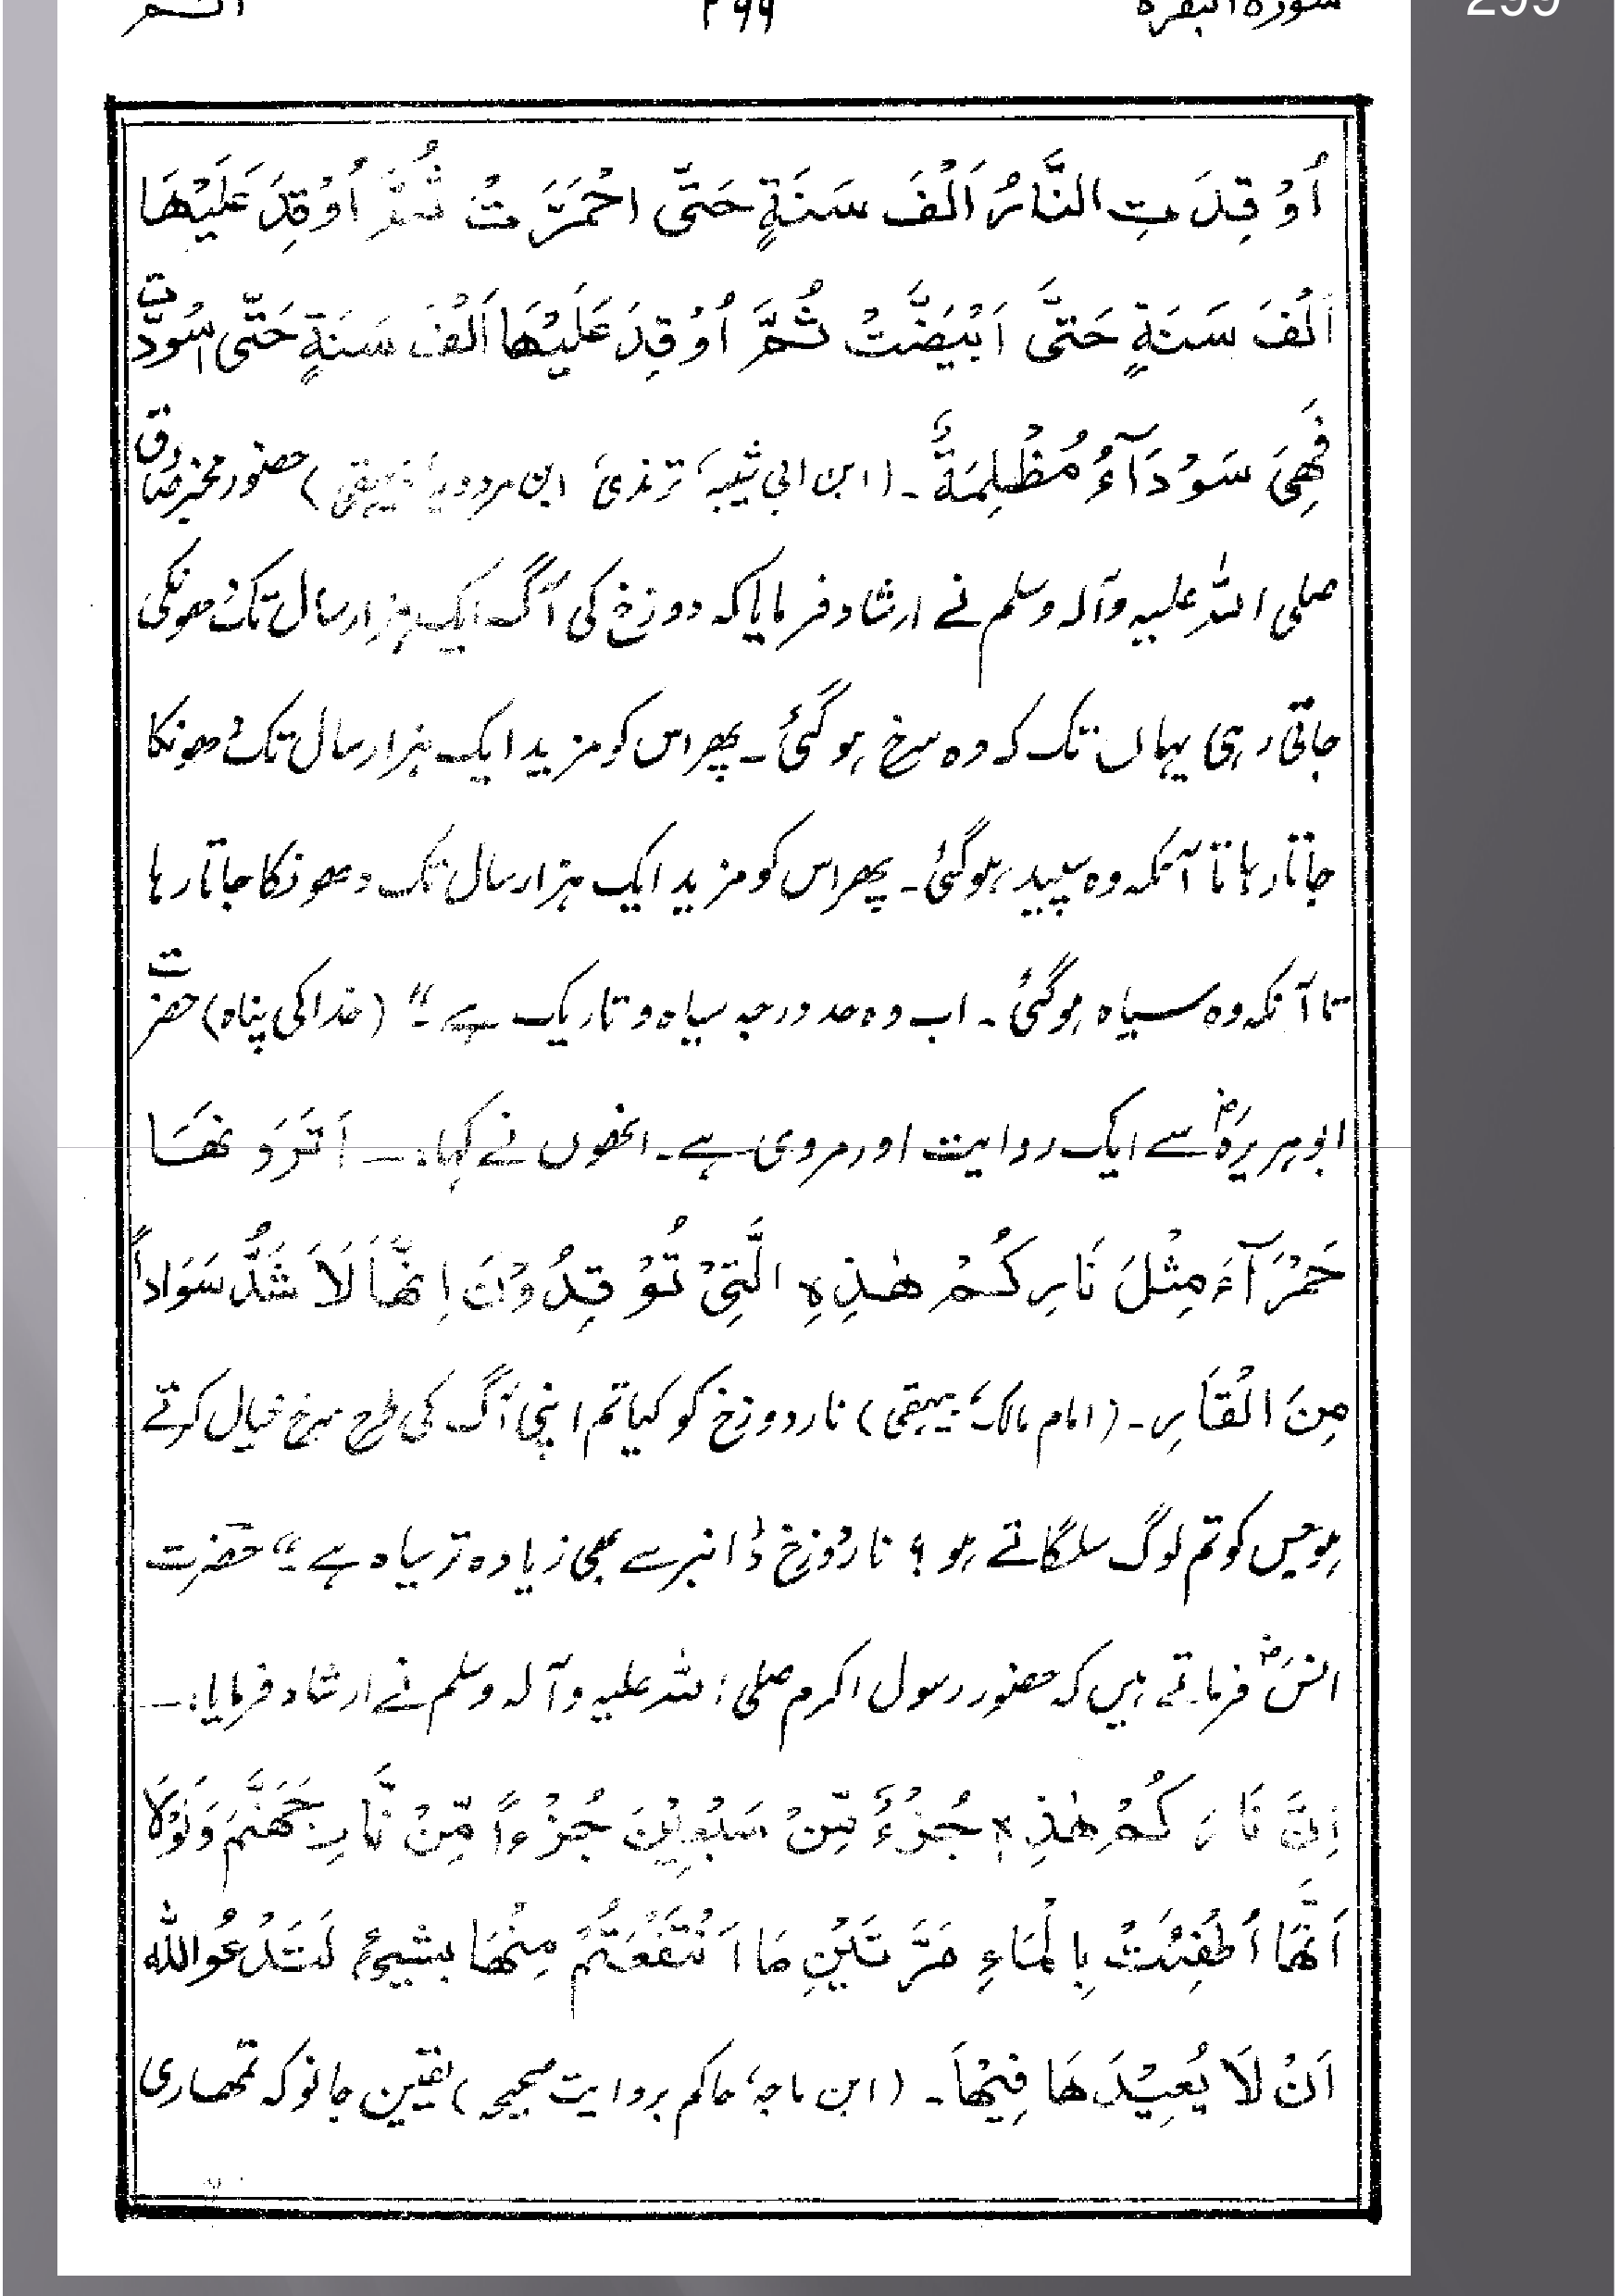 299
سورۃ البقرہ ۲۹۹ الٓــمّٓ
اُوْقِدَتِ النَّارُ اَلْفَ سَنَةٍ حَتّٰى احْمَرَّتْ ثُمَّ اُوْقِدَ عَلَيْهَا
اَلْفَ سَنَةٍ حَتّٰى اَبْيَضَّتْ ثُمَّ اُوْقِدَ عَلَيْهَا اَلْفَ سَنَةٍ حَتّٰى اسْوَدَّتْ
فَهِىَ سَوْدَآءُ مُظْلِمَةٌ ۔ (ابن ابی شیبہ، ترمذی، ابن مردویہ، بیہقی) حضور مخبر صادق
صلی اللہ علیہ وآلہ وسلم نے ارشاد فرمایا کہ دوزخ کی آگ ایک ہزار سال تک دھونکی
جاتی رہی یہاں تک کہ وہ سرخ ہوگئی۔ پھر اس کو مزید ایک ہزار سال تک دھونکا
جاتا رہا تا آنکہ وہ سپید ہوگئی۔ پھر اس کو مزید ایک ہزار سال تک دھونکا جاتا رہا
تا آنکہ وہ سیاہ ہوگئی۔ اب وہ حد درجہ سیاہ و تاریک ہے۔“ (خدا کی پناہ) حضرت
ابوہریرہؓ سے ایک روایت اور مروی ہے۔ انھوں نے کہا:۔ اَتَرَوْنَهَا
حَمْرَآءَ مِثْلَ نَارِكُمْ هٰذِهِ الَّتِىْ تُوْقِدُوْنَ اِنَّهَا لَاَشَدُّ سَوَاداً
مِنَ الْقَارِ ۔ (امام مالک، بیہقی) نار دوزخ کو کیا تم اپنی آگ کی طرح سرخ خیال کرتے
ہو جس کو تم لوگ سلگاتے ہو؟ نار دوزخ ڈانبر سے بھی زیادہ تر سیاہ ہے۔“ حضرت
انسؓ فرماتے ہیں کہ حضور رسول اکرم صلی اللہ علیہ وآلہ وسلم نے ارشاد فرمایا:۔
اِنَّ نَارَكُمْ هٰذِهٖ جُزْءٌ مِّنْ سَبْعِيْنَ جُزْءاً مِّنْ نَّارِ جَهَنَّمَ وَلَوْلَا
اَنَّهَا اُطْفِئَتْ بِالْمَاءِ مَرَّتَيْنِ مَا اَنْتَفَعْتُمْ مِنْهَا بِشَىْءٍ لَتَدْعُو اللّٰه
اَنْ لَا يُعِيْدَهَا فِيْهَا ۔ (ابن ماجہ، حاکم بروایت صحیحہ) یقین جانو کہ تمھاری